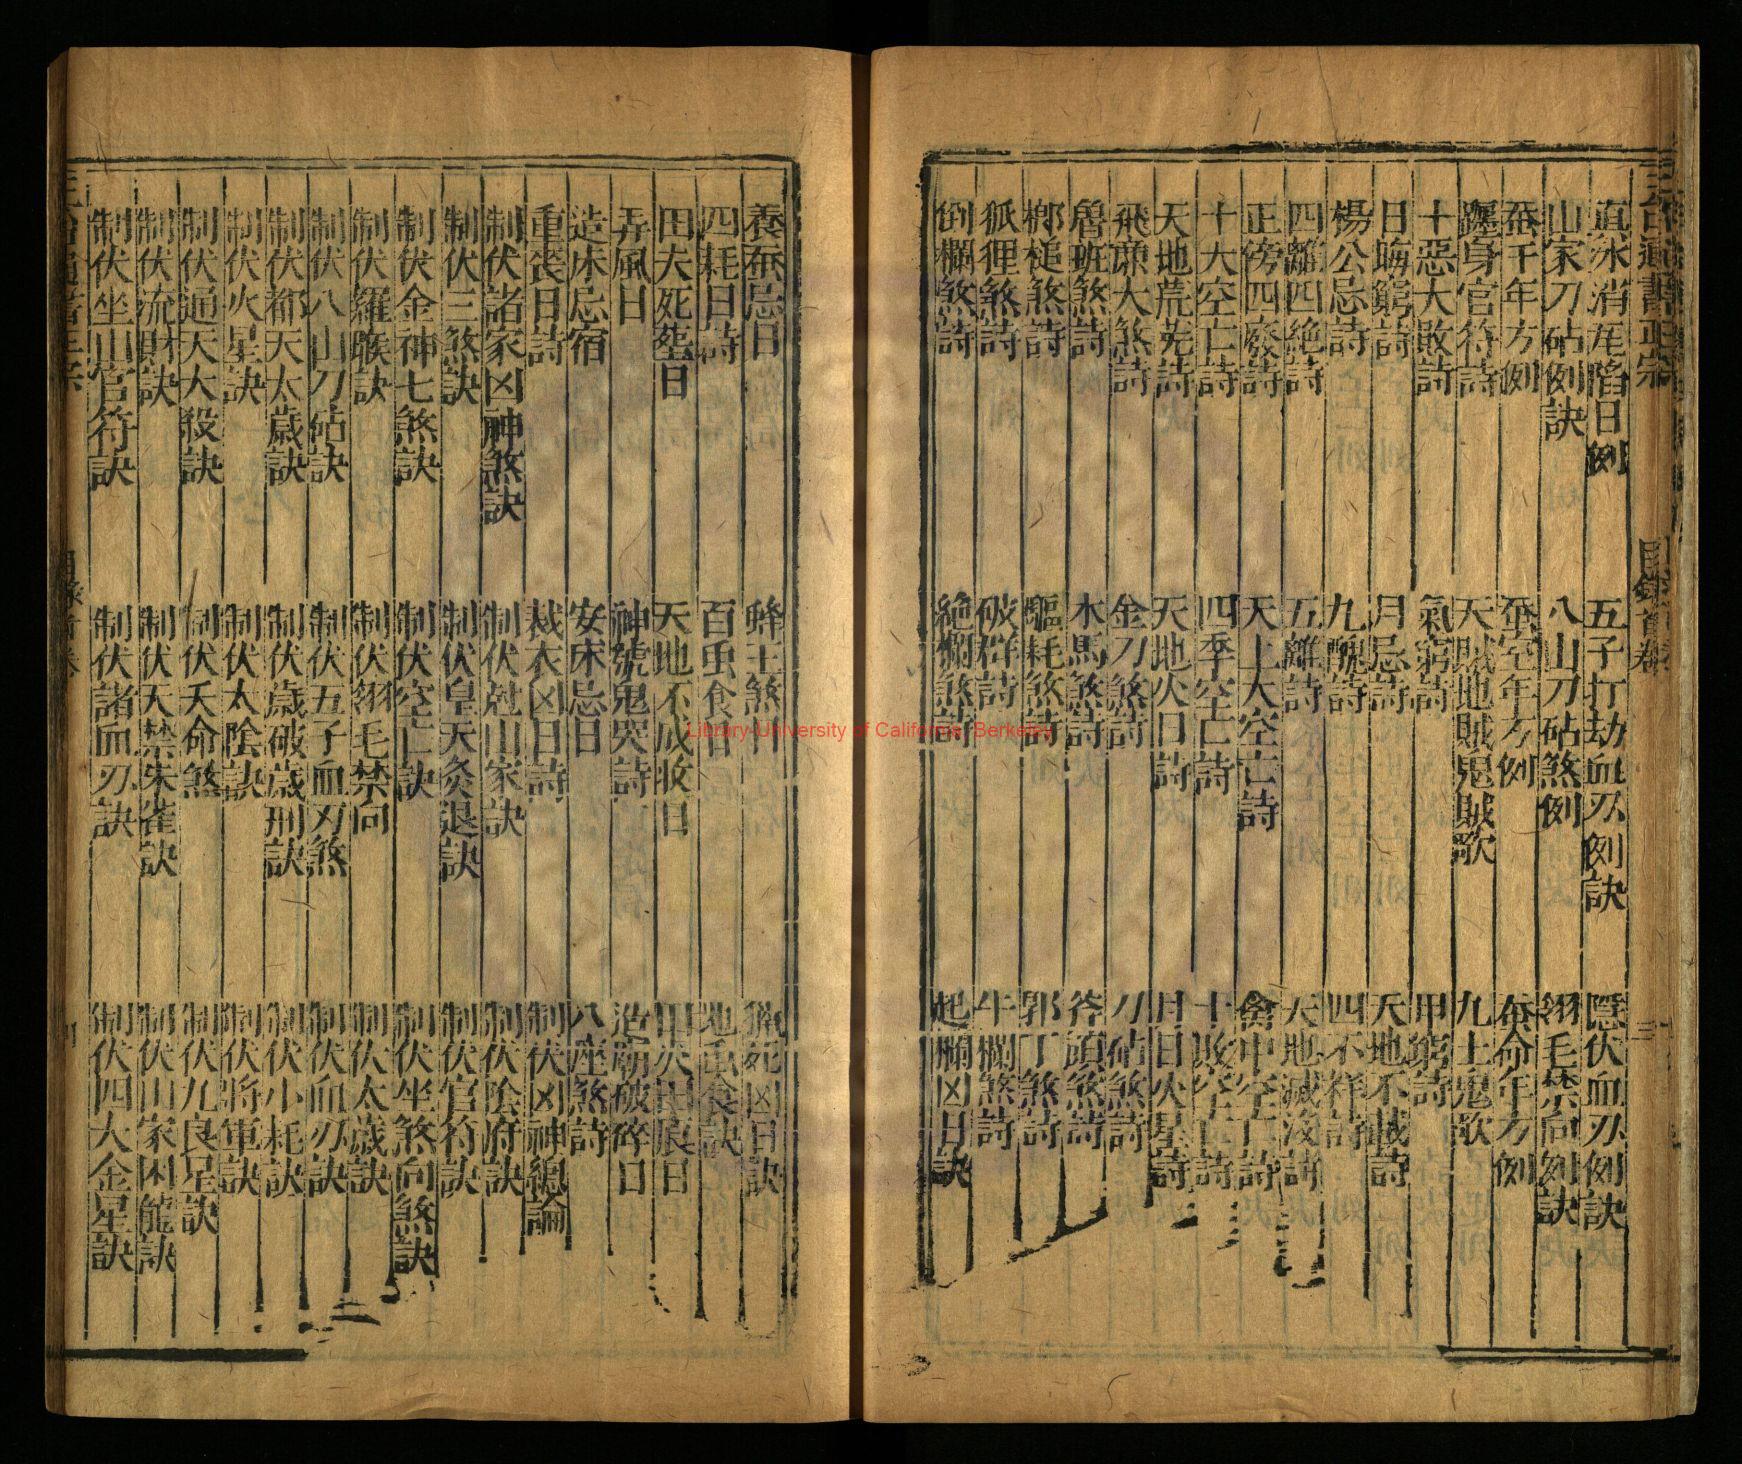 三台通書正宗 目錄首卷 三
直氷消瓦陷日例 五子打劫血刃例訣 隱伏血刃例訣
山家刀砧例訣 八山刀砧煞例 翎毛禁向例訣
蚕干年方例 蚕室年方例 蚕命年方例
躔身官符詩 天賊地賊鬼賊歌 九土鬼歌
十惡大敗詩 氣窮詩 甲窮詩
日晦窮詩 月忌詩 天地不載詩
楊公忌詩 九醜詩 四不祥詩
四離四絶詩 五離詩 天地滅沒詩
正傍四廢詩 天上大空亡詩 禽中空亡詩
十大空亡詩 四季空亡詩 十敗空亡詩
天地荒蕪詩 天地火日詩 月日火星詩
飛廉大煞詩 金刀煞詩 刀砧煞詩
魯班煞詩 木馬煞詩 斧頭煞詩
槨槌煞詩 驅耗煞詩 郭丁煞詩
狐狸煞詩 破群詩 牛欄煞詩
倒欄煞詩 絶欄煞詩 起欄凶日訣
養蚕忌日 蜂王煞日 獵死凶日訣
四耗日詩 百虫食日 地虫食訣
田夫死塟日 天地不成收日 田火田辰日
弄風日 神號鬼哭詩 造廟破碎日
造床忌宿 安床忌日 八座煞詩
重喪日詩 裁衣凶日詩 制伏凶神總論
制伏諸家凶神煞訣 制伏尅山家訣 制伏陰府訣
制伏三煞訣 制伏皇天灸退訣 制伏官符訣
制伏金神七煞訣 制伏空亡訣 制伏坐煞向煞訣
制伏羅睺訣 制伏翎毛禁向 制伏太歲訣
制伏八山刀砧訣 制伏五子血刃煞 制伏血刃訣
制伏都天太歲訣 制伏歲破歲刑訣 制伏小耗訣
制伏火星訣 制伏太陰訣 制伏將軍訣
制伏通天大殺訣 制伏夭命煞 制伏九良星訣
制伏流財訣 制伏天禁朱雀訣 制伏山家困龍訣
制伏坐山官符訣 制伏諸血刃訣 制伏四大金星訣
Library-University of California, Berkeley